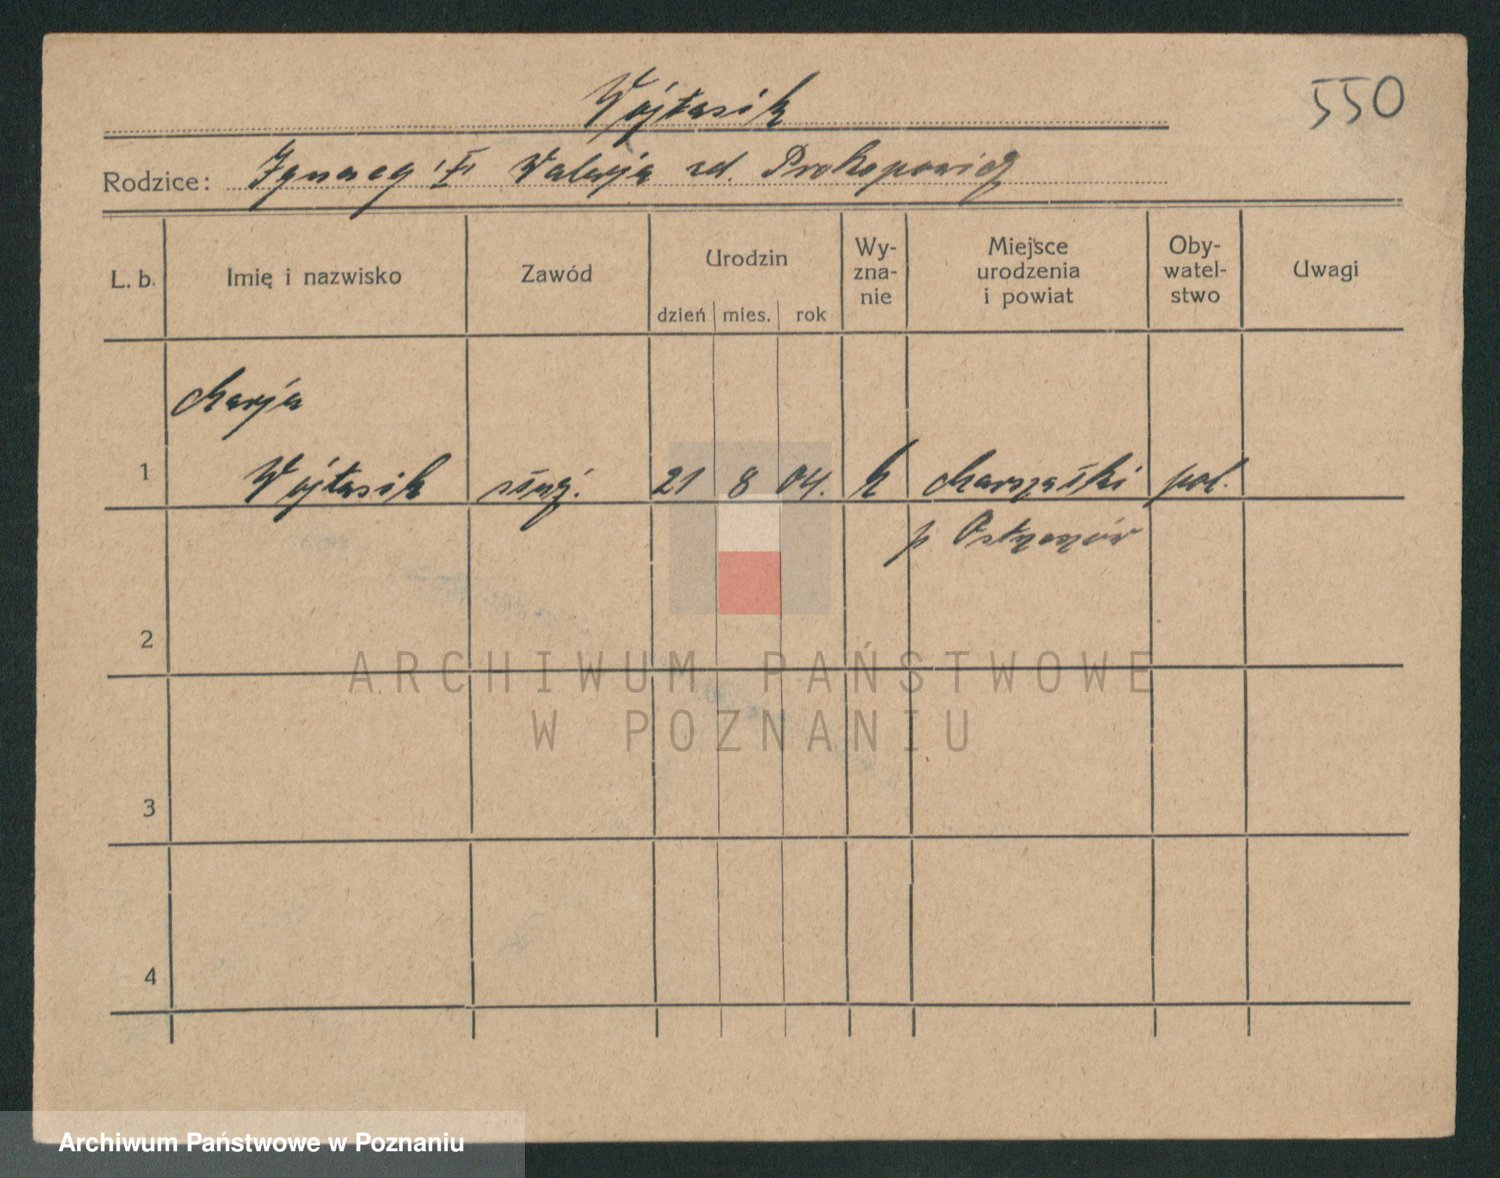 Wojtasik
550
Rodzice: Ignacy Walerja zd. Prokopowicz
L. b. Imię i nazwisko Zawód Urodzin dzień mies. rok Wy-zna-nie Miejsce urodzenia i powiat Oby-watel-stwo Uwagi
Marja
1 Wojtasik służ. 21 8 04. k Marszałki pol.
p Ostrzeszów
2
ARCHIWUM PAŃSTWOWE
W POZNANIU
3
4
Archiwum Państwowe w Poznaniu